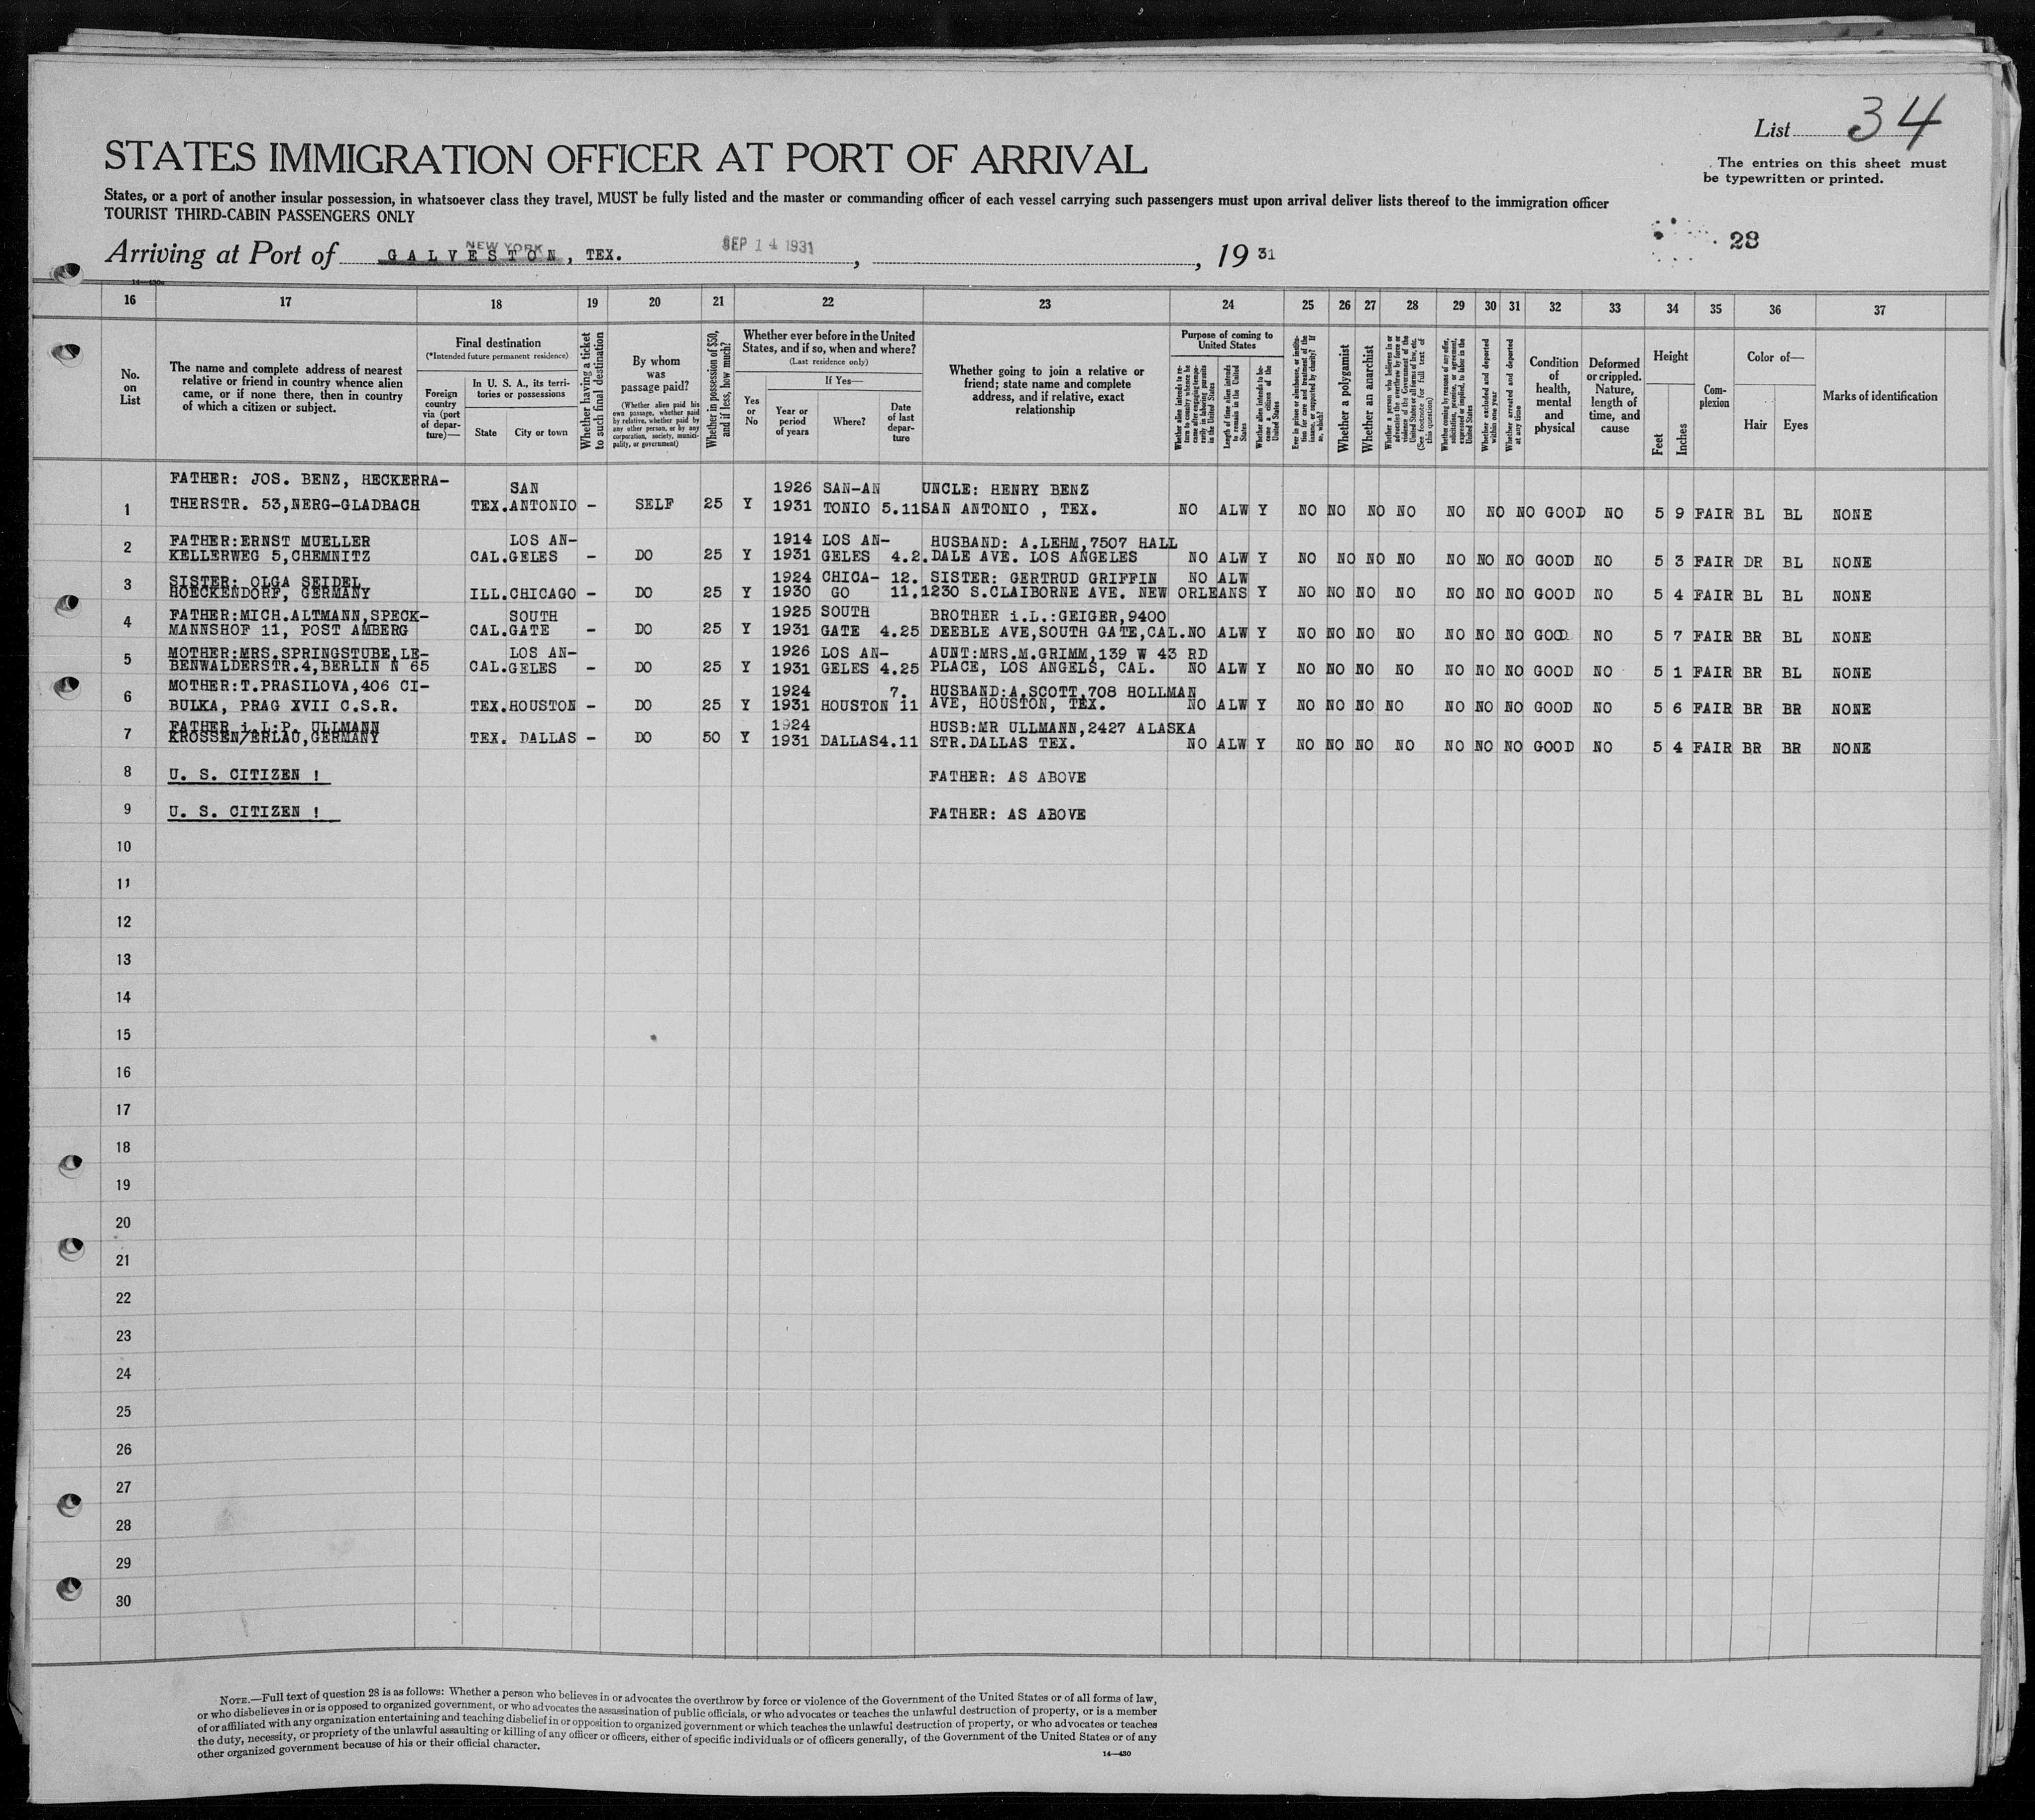 List 34
STATES IMMIGRATION OFFICER AT PORT OF ARRIVAL
The entries on this sheet must
be typewritten or printed.
States, or a port of another insular possession, in whatsoever class they travel, MUST be fully listed and the master or commanding officer of each vessel carrying such passengers must upon arrival deliver lists thereof to the immigration officer
TOURIST THIRD-CABIN PASSENGERS ONLY
Arriving at Port of GALVESTON, TEX. NEW YORK SEP 14 1931, 19 31
28
16 17 18 19 20 21 22 23 24 25 26 27 28 29 30 31 32 33 34 35 36 37
No. on List
The name and complete address of nearest relative or friend in country whence alien came, or if none there, then in country of which a citizen or subject.
Final destination
(*Intended future permanent residence)
Foreign country via (port of departure)—
In U. S. A., its territories or possessions
State
City or town
Whether having a ticket to such final destination
By whom was passage paid?
(Whether alien paid his own passage, whether paid by relative, whether paid by any other person, or by any corporation, society, municipality, or government)
Whether in possession of $50, and if less, how much?
Whether ever before in the United States, and if so, when and where?
(Last residence only)
Yes or No
If Yes—
Year or period of years
Where?
Date of last departure
Whether going to join a relative or friend; state name and complete address, and if relative, exact relationship
Purpose of coming to United States
Whether alien intends to return to country whence he came after engaging temporarily in laboring pursuits in the United States
Length of time alien intends to remain in the United States
Whether alien intends to become a citizen of the United States
Ever in prison or almshouse, or institution for care and treatment of the insane, or supported by charity? If so, which?
Whether a polygamist
Whether an anarchist
Whether a person who believes in or advocates the overthrow by force or violence of the Government of the United States or all forms of law, etc. (See footnote for full text of this question)
Whether coming by reasons of any offer, solicitation, promise, or agreement, expressed or implied, to labor in the United States
Whether excluded and deported within one year
Whether arrested and deported at any time
Condition of health, mental and physical
Deformed or crippled. Nature, length of time, and cause
Height
Feet
Inches
Complexion
Color of—
Hair
Eyes
Marks of identification
FATHER: JOS. BENZ, HECKERRA- SAN 1926 SAN-AN UNCLE: HENRY BENZ
1 THERSTR. 53,NERG-GLADBACH TEX. ANTONIO - SELF 25 Y 1931 TONIO 5.11 SAN ANTONIO , TEX. NO ALW Y NO NO NO NO NO NO NO GOOD NO 5 9 FAIR BL BL NONE
FATHER:ERNST MUELLER LOS AN- 1914 LOS AN- HUSBAND: A.LEHM,7507 HALL
2 KELLERWEG 5,CHEMNITZ CAL. GELES - DO 25 Y 1931 GELES 4.2. DALE AVE. LOS ANGELES NO ALW Y NO NO NO NO NO NO NO GOOD NO 5 3 FAIR DR BL NONE
SISTER: OLGA SEIDEL 1924 CHICA- 12. SISTER: GERTRUD GRIFFIN NO ALW
3 HOECKENDORF, GERMANY ILL. CHICAGO - DO 25 Y 1930 GO 11. 1230 S.CLAIBORNE AVE. NEW ORLEANS Y NO NO NO NO NO NO NO GOOD NO 5 4 FAIR BL BL NONE
FATHER:MICH.ALTMANN,SPECK- SOUTH 1925 SOUTH BROTHER i.L.:GEIGER,9400
4 MANNSHOF 11, POST AMBERG CAL. GATE - DO 25 Y 1931 GATE 4.25 DEEBLE AVE,SOUTH GATE,CAL. NO ALW Y NO NO NO NO NO NO NO GOOD NO 5 7 FAIR BR BL NONE
MOTHER:MRS.SPRINGSTUBE,LE- LOS AN- 1926 LOS AN- AUNT:MRS.M.GRIMM,139 W 43 RD
5 BENWALDERSTR.4,BERLIN N 65 CAL. GELES - DO 25 Y 1931 GELES 4.25 PLACE, LOS ANGELS, CAL. NO ALW Y NO NO NO NO NO NO NO GOOD NO 5 1 FAIR BR BL NONE
MOTHER:T.PRASILOVA,406 CI- 1924 7. HUSBAND:A.SCOTT,708 HOLLMAN
6 BULKA, PRAG XVII C.S.R. TEX. HOUSTON - DO 25 Y 1931 HOUSTON 11 AVE, HOUSTON, TEX. NO ALW Y NO NO NO NO NO NO NO GOOD NO 5 6 FAIR BR BR NONE
FATHER i.L:P. ULLMANN 1924 HUSB:MR ULLMANN,2427 ALASKA
7 KROSSEN/ERLAU,GERMANY TEX. DALLAS - DO 50 Y 1931 DALLAS 4.11 STR.DALLAS TEX. NO ALW Y NO NO NO NO NO NO NO GOOD NO 5 4 FAIR BR BR NONE
8 U. S. CITIZEN ! FATHER: AS ABOVE
9 U. S. CITIZEN ! FATHER: AS ABOVE
10
11
12
13
14
15
16
17
18
19
20
21
22
23
24
25
26
27
28
29
30
NOTE.—Full text of question 28 is as follows: Whether a person who believes in or advocates the overthrow by force or violence of the Government of the United States or of all forms of law,
or who disbelieves in or is opposed to organized government, or who advocates the assassination of public officials, or who advocates or teaches the unlawful destruction of property, or is a member
of or affiliated with any organization entertaining and teaching disbelief in or opposition to organized government or which teaches the unlawful destruction of property, or who advocates or teaches
the duty, necessity, or propriety of the unlawful assaulting or killing of any officer or officers, either of specific individuals or of officers generally, of the Government of the United States or of any
other organized government because of his or their official character.
14—430